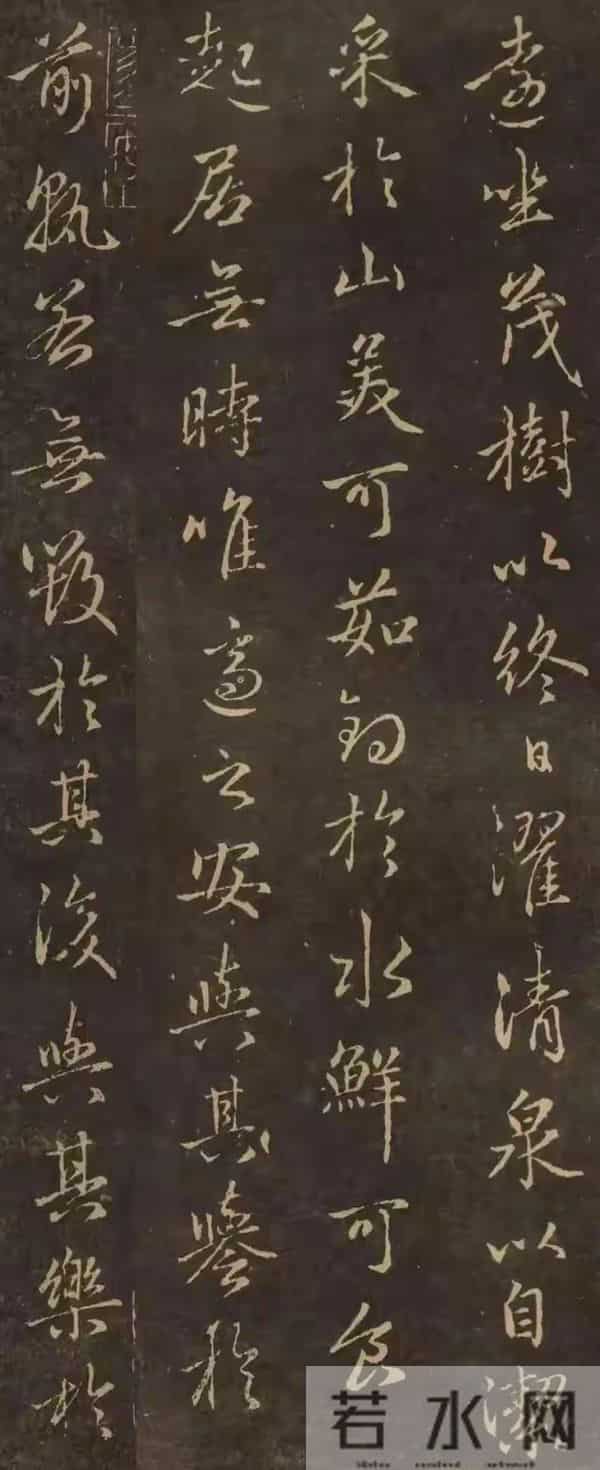 遠坐茂樹以終日濯清泉以自潔
采於山美可茹釣於水鮮可食
起居无時唯適之安與其譽於
前孰若無毀於其後與其樂於
若水网